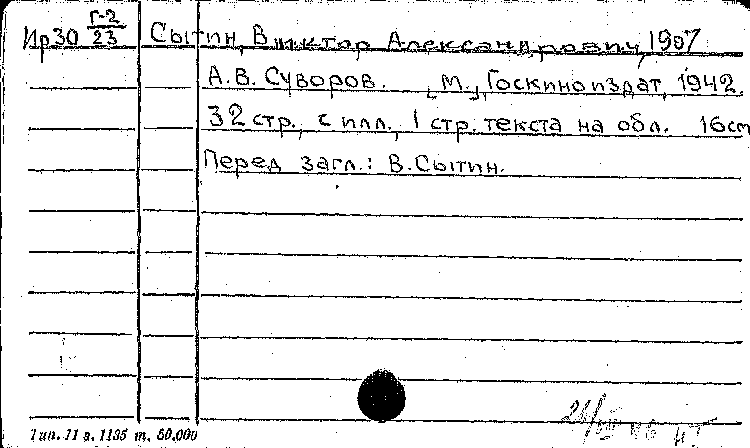 Ир30 Г-2/23 Сытин, Виктор Александрович, 1907
А.В. Суворов. [М.], Госкиноиздат, 1942.
32 стр., с илл., 1 стр. текста на обл. 16см
Перед загл.: В. Сытин.
Тип. 11 з. 1135 т. 50,000